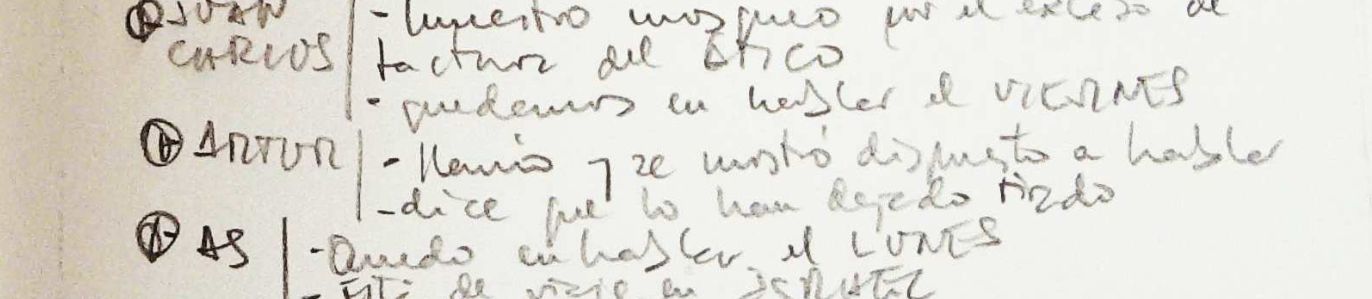 JUAN CARLOS - muestro mosqueo por el exceso de
factura del ÁTICO
- quedamos en hablar el VIERNES
ARTUR - llamó y se mostró dispuesto a hablar
- dice que lo han dejado tirado
AS - Quedo en hablar el LUNES
- Está de viaje en ISRAEL